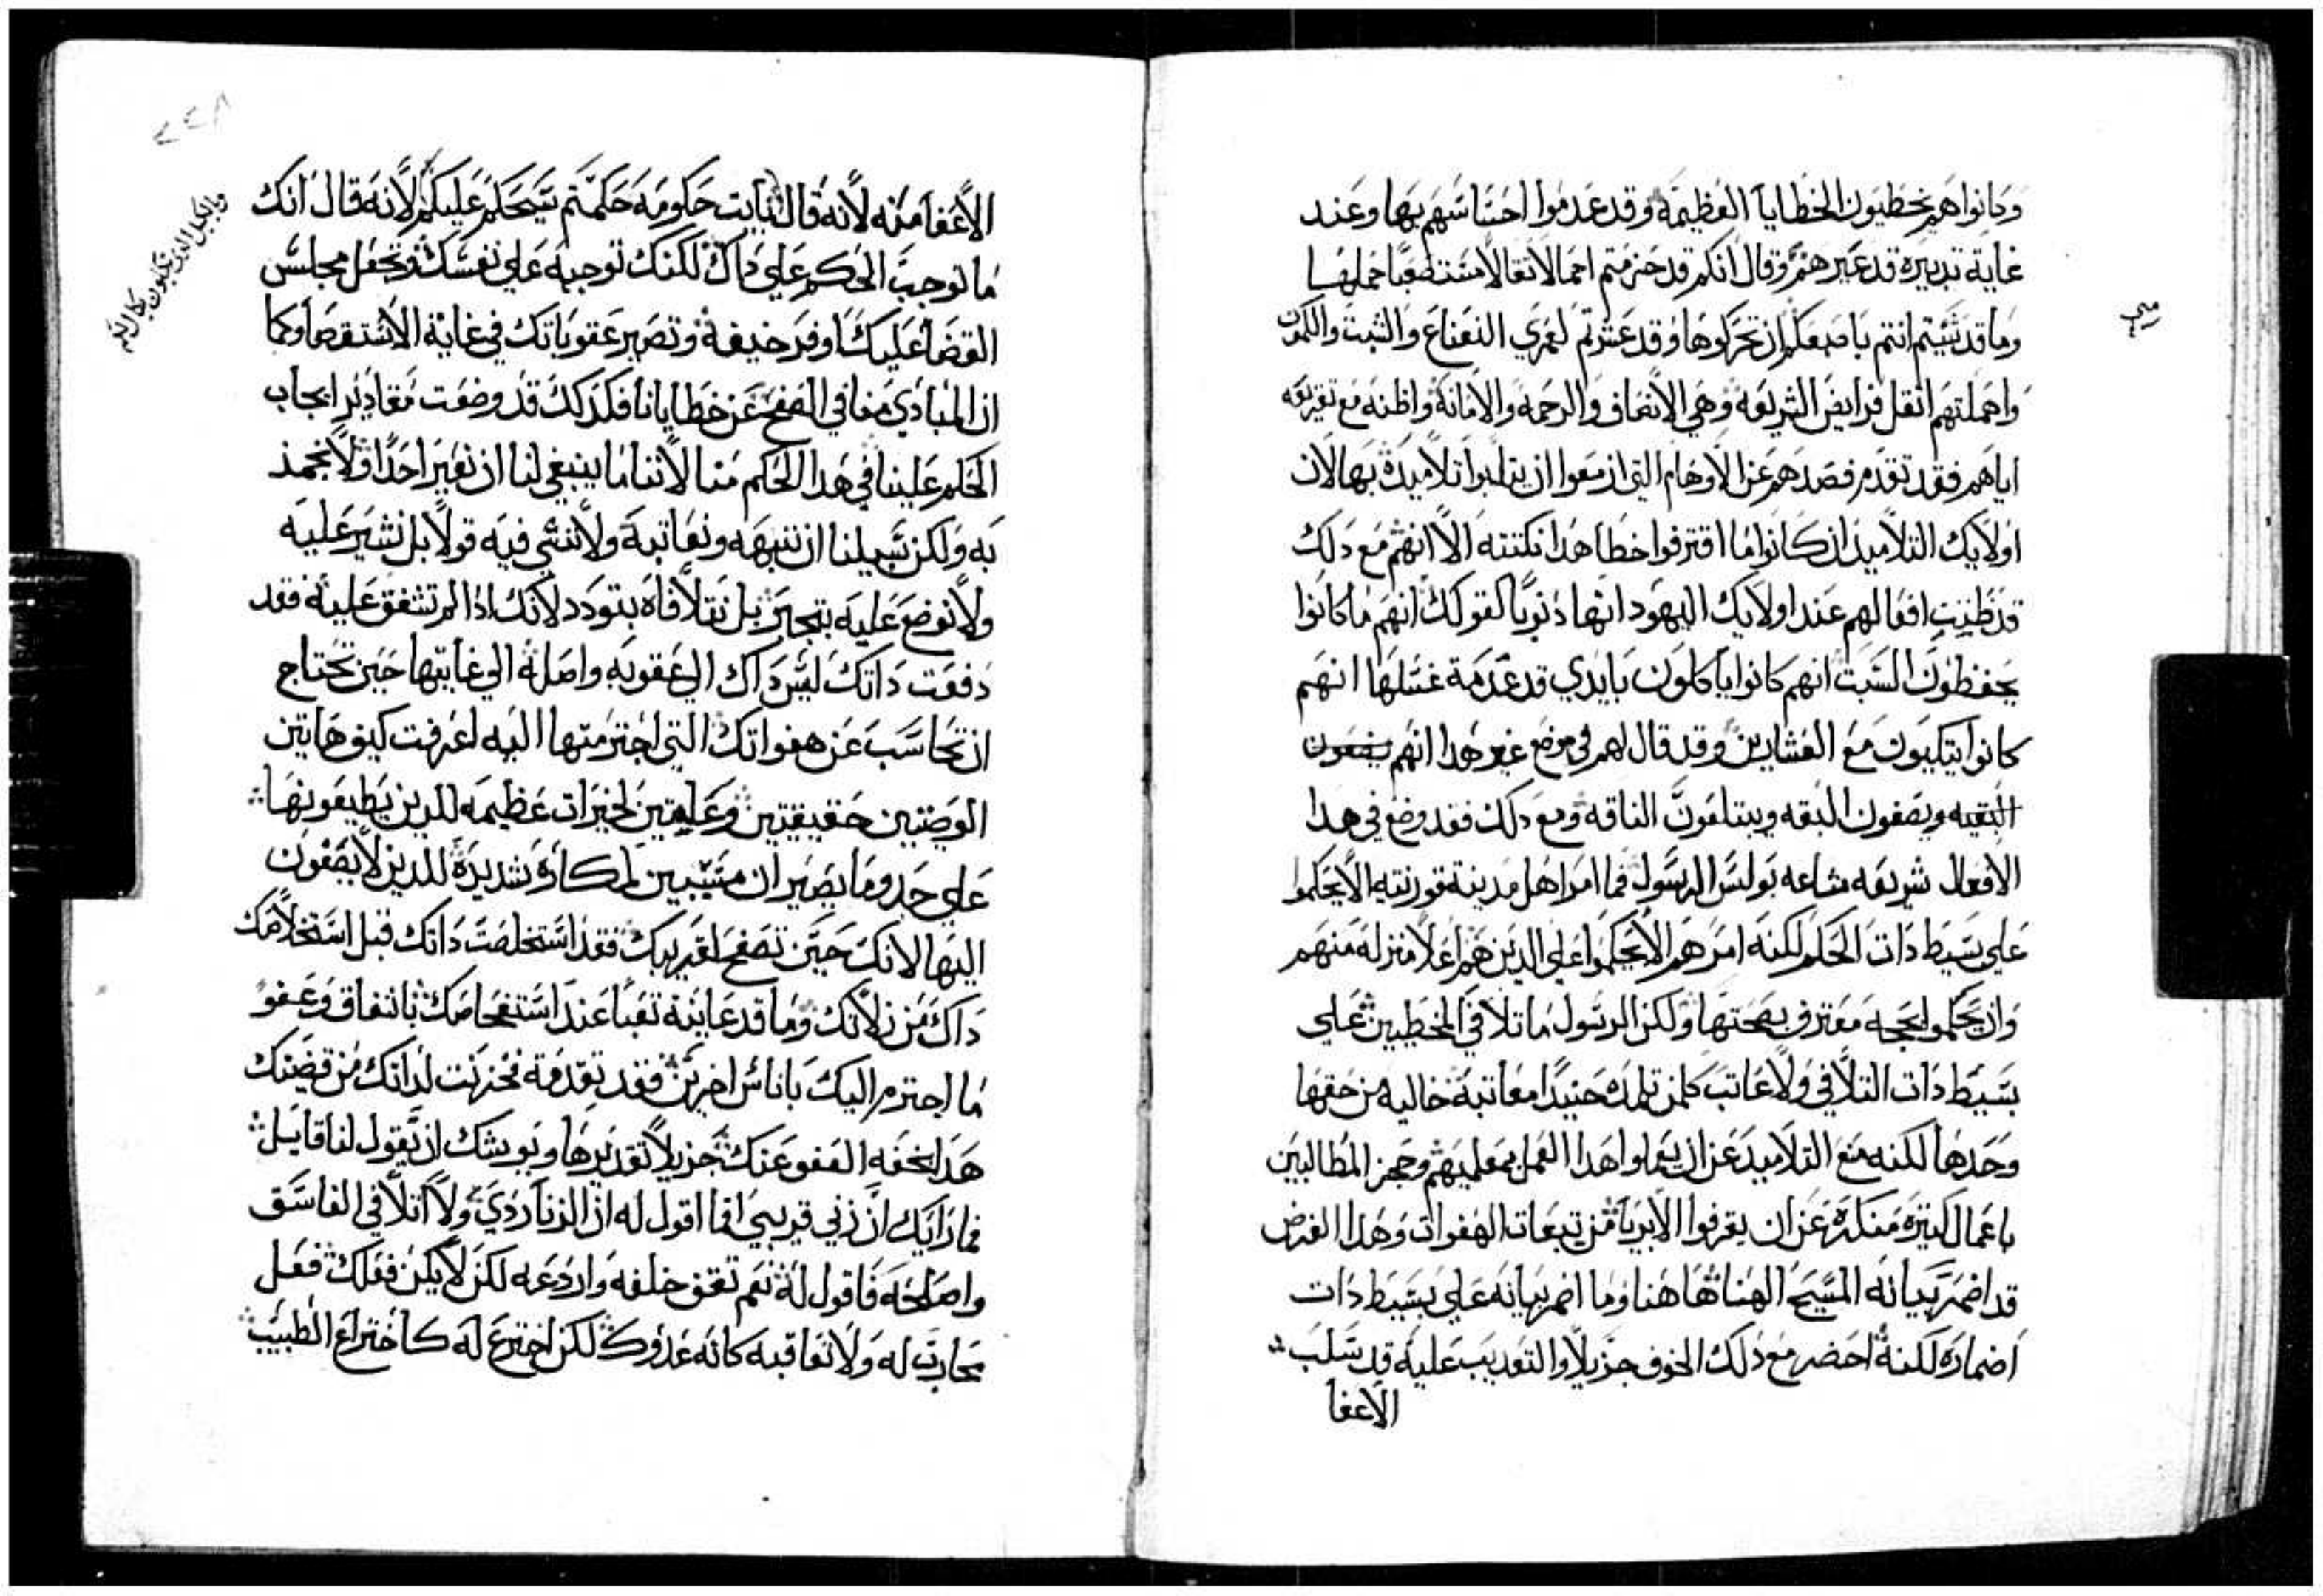 وكانوا هم يخطيون الخطايا العظيمة وقد عدموا احساسهم بها وعند
غاية تدبيره قد عيرهم وقال انكم قد حزمتم احمالا ثقالا مستصعبا حملها
وما قد شيتم انتم باصبعكم ان تحركوها وقد عشرتم لعمري النعناع والشبت والكمون
واهملتهم اثقل فرايض الشريعه وهي الانصاف والرحمه والامانة واظنه مع تقريعه
اياهم فقد تقدم فصدهم عن الاوهام التي ازمعوا ان يثلبوا تلاميذه بها لان
اولايك التلاميذ ان كانوا ما اقترفوا خطا هذا نكتته الا انهم مع دلك
قد ظنيت افعالهم عند اولايك اليهود انها دنوبا كقولك انهم ما كانوا
يحفظون السبت انهم كانوا ياكلون بايدي قد عدمة غسلها انهم
كانوا يتكيون مع العشارين وقد قال لهم في موضع غير هدا انهم يصفون
البقه ويصفون البقه ويبتلعون الناقه ومع دلك فقد وضع في هدا
الافعال شريعه مشاعه بولس الرسول فما امر اهل مدينة قورنتيه الا يحكموا
على بسيط دات الحكم لكنه امرهم الا يحكموا على الدين هم اعلا منزله منهم
وان يحكموا بحجه معترف بصحتها ولكن الرسول ما تلافي المخطيين على
بسيط دات التلافي ولا عاتب كلمن تلمده حنييدا معاتبة خاليه من حقها
وحدها لكنه منع التلاميد عن ان يعملوا هدا العمل بمعلميهم وحجز المطالبين
باعمال كثيرة منكرة عن ان يقرفوا الابريا من تبعات الهفوات وهدا الغرض
قد اضمر بيانه المسيح الهنا هاهنا وما اضمر بيانه على بسيط دات
اضماره لكنه احضر مع دلك الخوف جزيلا والتعديب عليه قد سلب
الاعفا
الاعفا منه لانه قال بايت حكومه حكمتم سيحكم عليكم لانه قال انك
ما توجب الحكم على داك لكنك توجبه على نفسك وتجعل مجلس
القضا عليك اوفر خيفة وتصير عقوباتك في غاية الاستقصا وكما
ان المبادي منا في الصفح عن خطايانا فكدلك قد وضعت مقادير ايجاب
الحكم علينا في هدا الحكم منا لاننا ما ينبغي لنا ان نعير احدا ولا نجمد
به ولكن سبيلنا ان ننبهه ونعاتبه ولا ننثي فيه قولا بل نشير عليه
ولا نوضع عليه بتجبر بل نتلافاه بتودد لانك ادا لم تشفق عليه فقد
دفعت داتك ليس داك الى عقوبه واصلة الى غايتها حين تحتاج
ان تحاسب عن هفواتك التي اجترمتها اليه اعرفت كيف هاتين
الوصيتين خفيفتين وعليتين لخيرات عظيمه للدين يطيعونها
على حدو ما يصيران مسببين لمكاره شديدة للدين لا يصغون
اليها لانك حين تصفح لقريبك فقد استخلصت داتك قبل استخلاصك
داك من زلاتك وما قد عاينة تعبا عند استفحاصك باتفاق وعفو
ما اجترم اليك باناس اخرين فقد تقدمة فخزنت لداتك من قضيتك
هدا بخفه العفو عنك جزيلا تقديرها ويوشك ان يقول لنا قايل
فما رايك ان زني قريبي افما اقول له ان الزنا ردي ولا اتلافي الفاسق
واصلحه فاقول له نعم تقف خلفه واردعه لكن لا يكن فعلك فعل
محارب له ولا تعاقبه كانه عدوك لكن اخترع له كاختراع الطبيب
وبالكيل الذي تكيلون يكال لكم